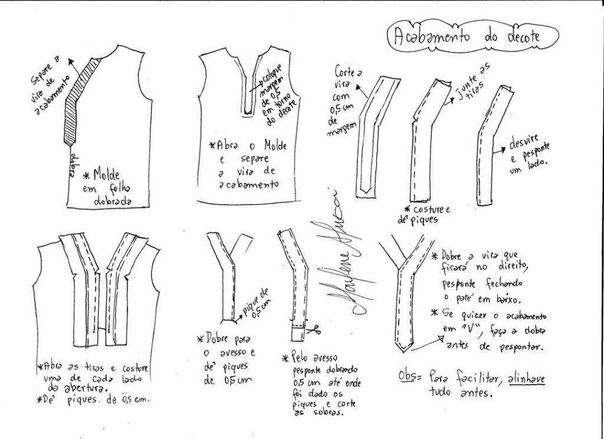 Acabamento do decote
Separe a
vira de
acabamento
dobra
* Molde
em folha
dobrada
coloque
margem
de 0,5
em torno
do decote
* Abra o Molde
e separe
a vira de
acabamento
Corte a
vira
com 0,5
cm de
margem
Junte as
tiras
* costure e
dê piques
desvire
e pesponte
um lado.
* Abra as tiras e costure
uma de cada lado
da abertura.
* Dê piques de 0,5 cm.
pique de
0,5 cm
* Dobre para
o avesso e
dê piques
de 0,5 cm
* Pelo avesso
pesponte dobrando
0,5 cm até onde
foi dado os
piques e corte
as sobras.
Marlene Mukai
* Dobre a vira que
ficará no direito,
pesponte fechando
o paré em baixo.
* Se quizer o acabamento
em "V", faça a dobra
antes de pespontar.
Obs= Para facilitar, alinhave
tudo antes.